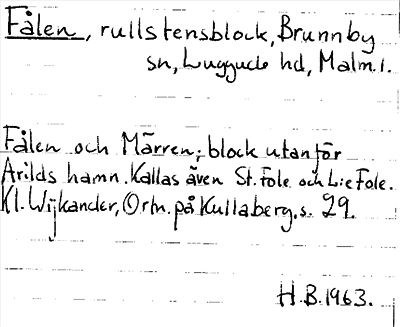 Fålen, rullstensblock, Brunnby
sn, Luggude hd, Malm.l.
Fålen och Märren; block utanför
Arilds hamn. Kallas även St. Fole och L:e Fole.
Kl. Wijkander, Ortn. på Kullaberg, s. 29.
H.B. 1963.